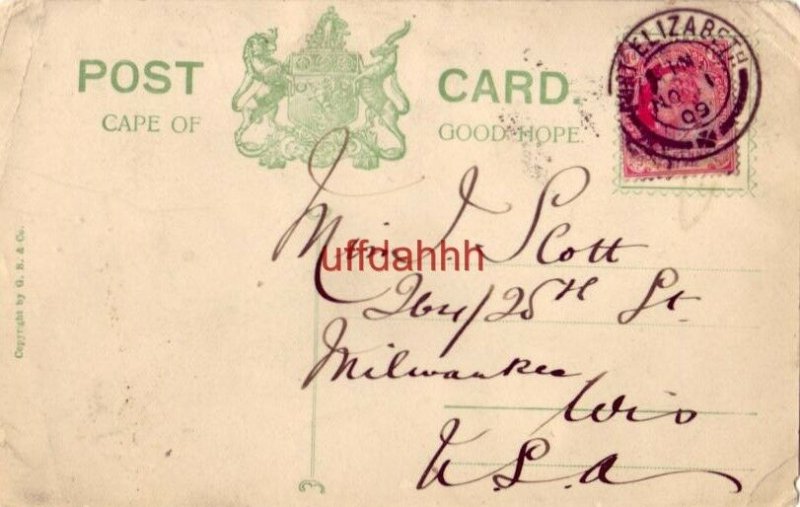 POST CARD.
CAPE OF GOOD HOPE
PORT ELIZABETH
NO 1
09
Miss J. Scott
uffdahhh
264/25th St.
Milwaukee
Wis
U.S.A
Copyright by G. B. & Co.